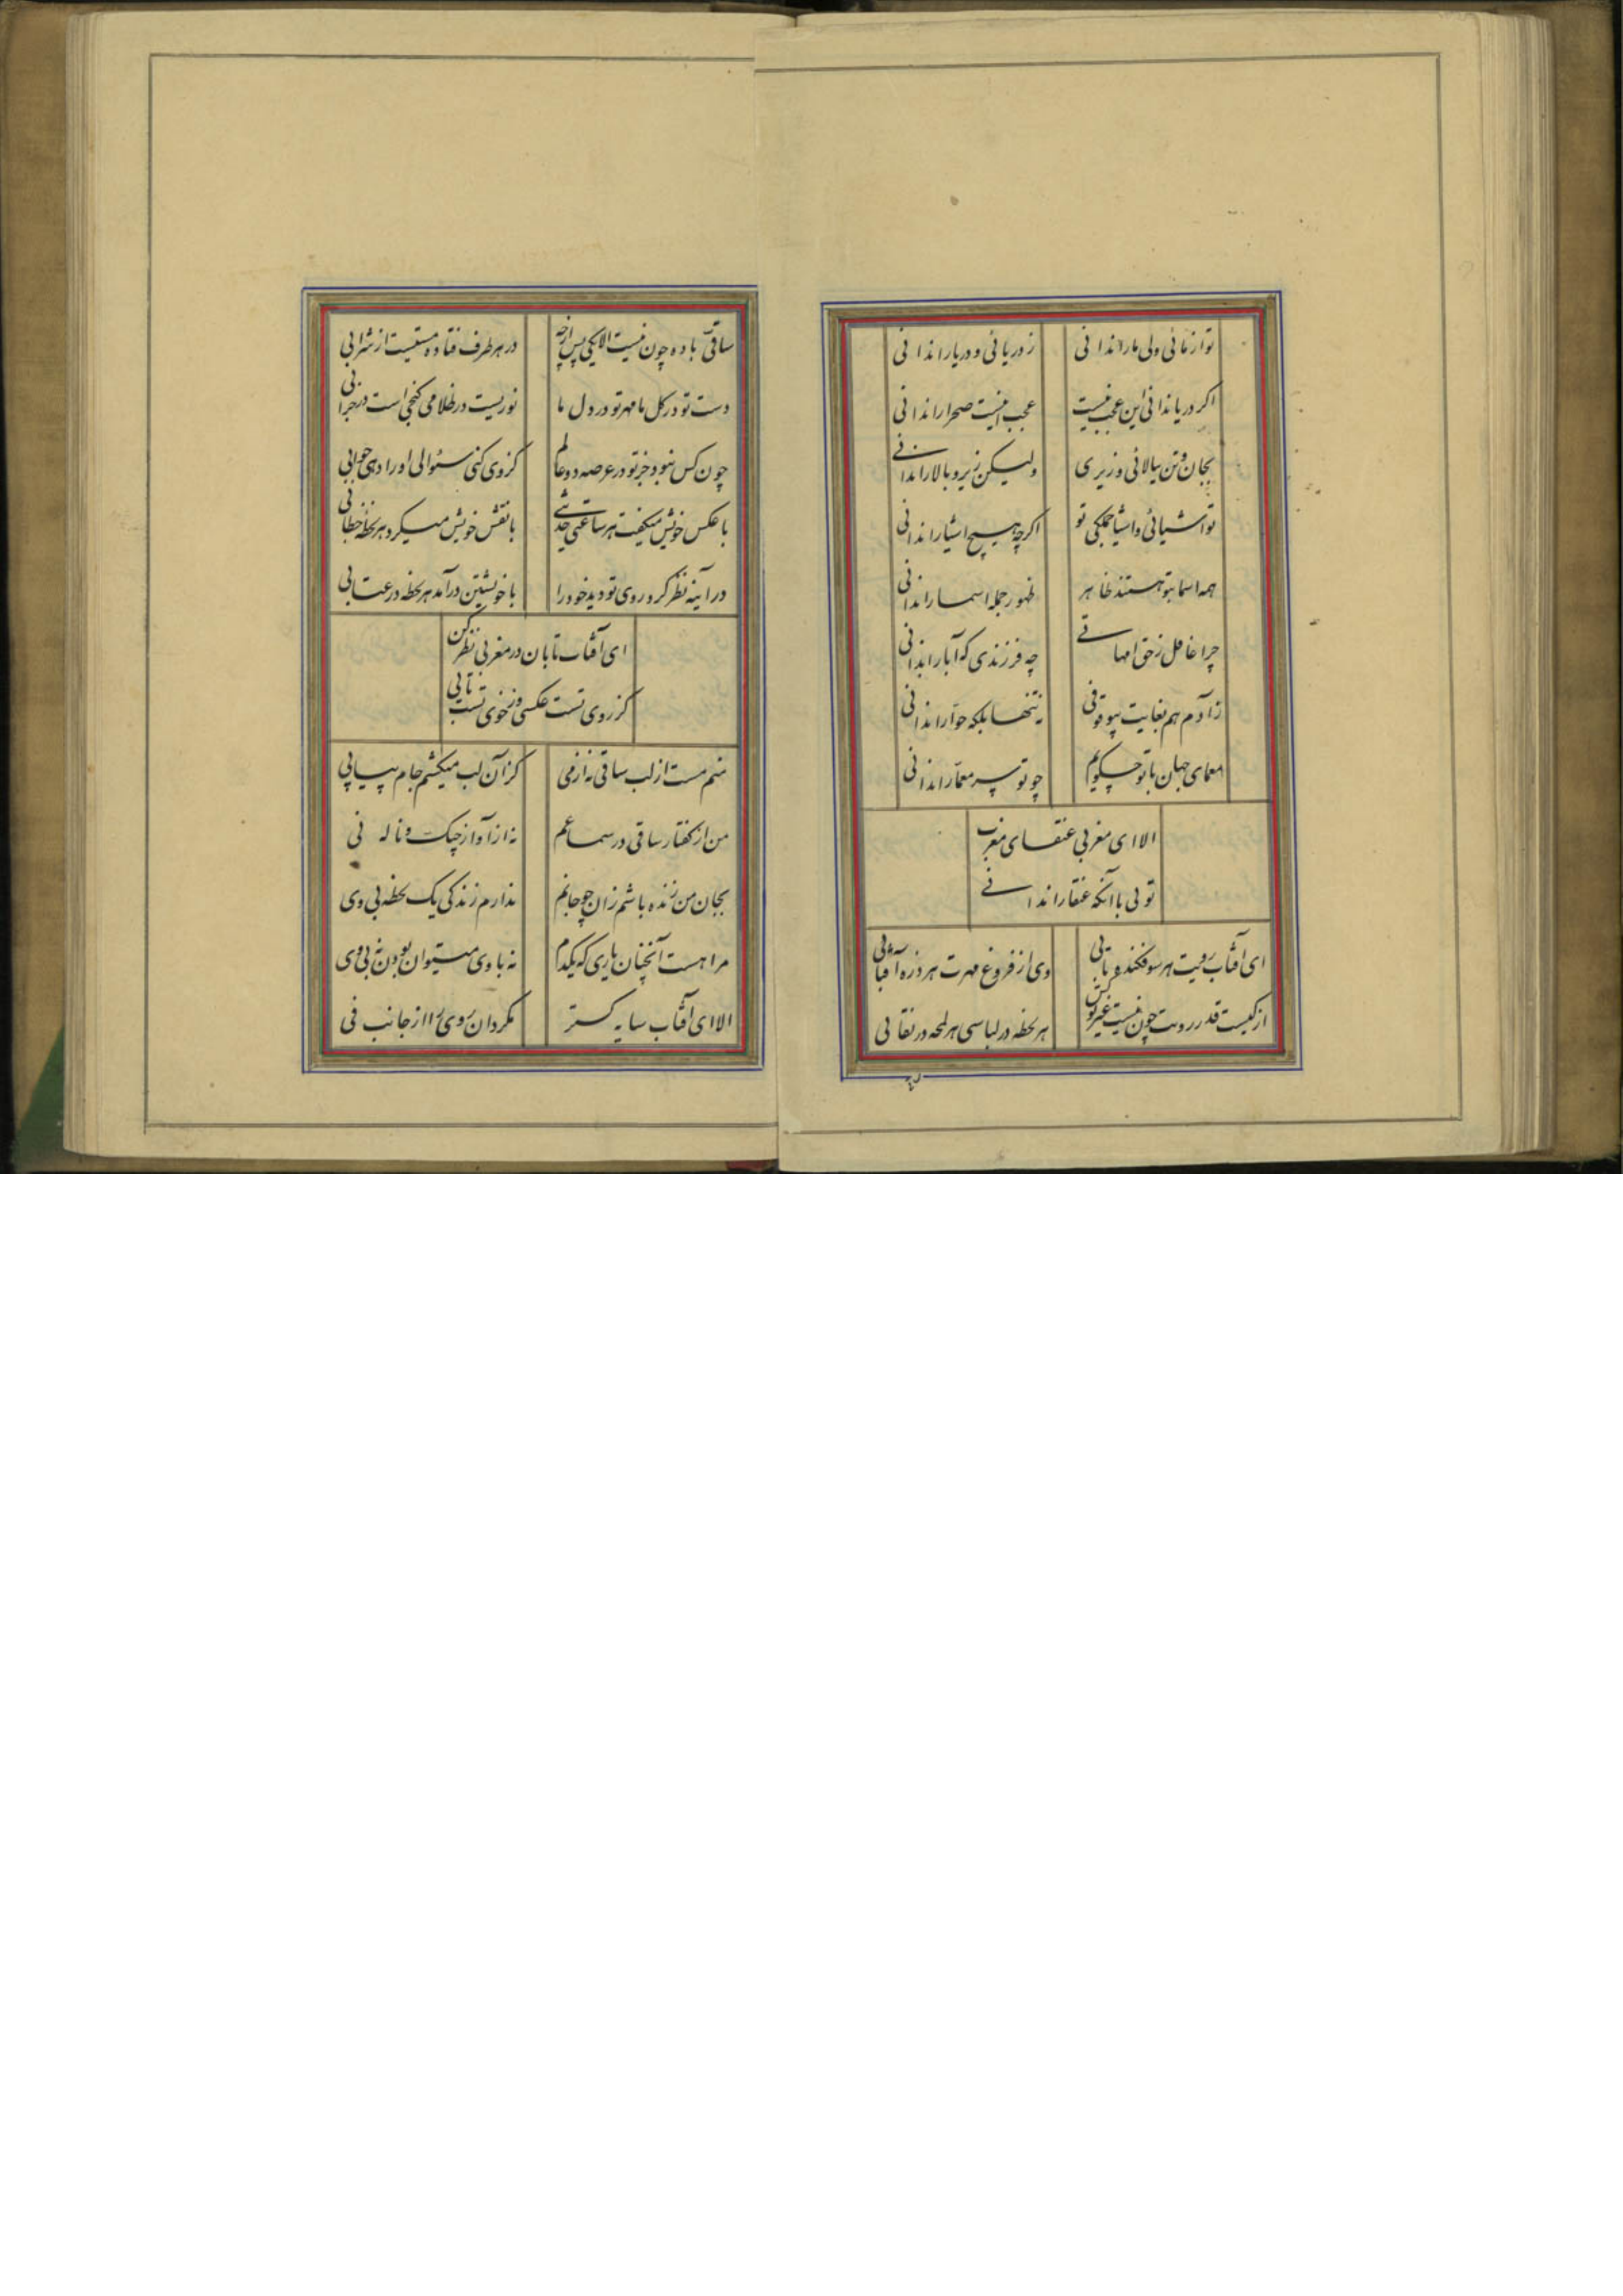 تو از مائی ولی ما را ندانی ز دریائی و دریا را ندانی
اکر دریا ندانی این عجب نیست عجب اینست صحرا را ندانی
بجان و تن ببالائی و زیری ولیکن زیر و بالا را ندانی
تو اشیائی و اشیا جملکی تو اکرچه هیچ اشیا را ندانی
همه اسما بتو هستند ظاهر ظهور جمله اسما را ندانی
چرا غافل ز حق امهاتی چه فرزندی که آبا را ندانی
ز آدم هم بغایت بیوقوفی نه تنها بلکه حوا را ندانی
معمای جهان با تو چه کویم چو تو سر معما را ندانی
الا ای مغربی عنقای مغرب
توئی با آنکه عنقا را ندانی
ای آفتاب رویت هر سو فکنده تابی وی از فروغ مهرت هر ذره آفتابی
از کیست قدر رویت چون نیست غیر تو کس هر لحظه در لباسی هر لمحه در نقابی
ساقی باده چون نیست الا یکی پس از چه در هر طرف فتاده مستیست از شرابی
دست تو در کل ما مهر تو در دل ما نوریست در ظلامی کنجی است در خرابی
چون کس نبود جز تو در عرصه دو عالم کز وی کنی سئوالی او را دهی جوابی
با عکس خویش میکفت هر ساعتی حدیثی با نقش خویش میکرد هر لحظه خطابی
در آینه نظر کرد روی تو دید خود را با خویشتن درآمد هر لحظه در عتابی
ای آفتاب تابان در مغربی نظر کن
کز روی تست عکسی وز خوی تست تابی
منم مست از لب ساقی نه از می کز آن لب میکشم جام پیاپی
من از کفتار ساقی در سماعم نه از آواز چنک و ناله نی
بجان من زنده باشم زان چو جانم ندارم زندکی یک لحظه بی وی
مرا هست آنچنان یاری که یکدم نه با وی میتوان بودن نه بی وی
الا ای آفتاب سایه کستر مکردان روی را از جانب فی